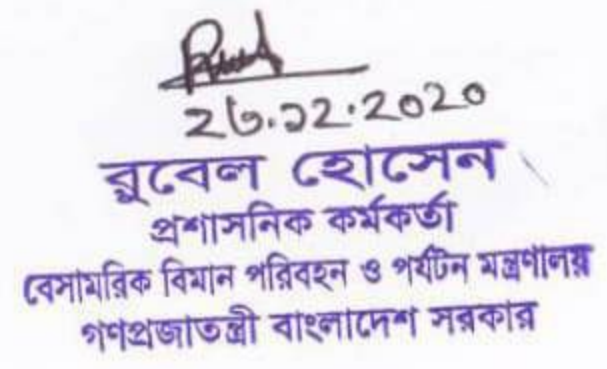 ২৬.১২.২০২০
রুবেল হোসেন
প্রশাসনিক কর্মকর্তা
বেসামরিক বিমান পরিবহন ও পর্যটন মন্ত্রণালয়
গণপ্রজাতন্ত্রী বাংলাদেশ সরকার